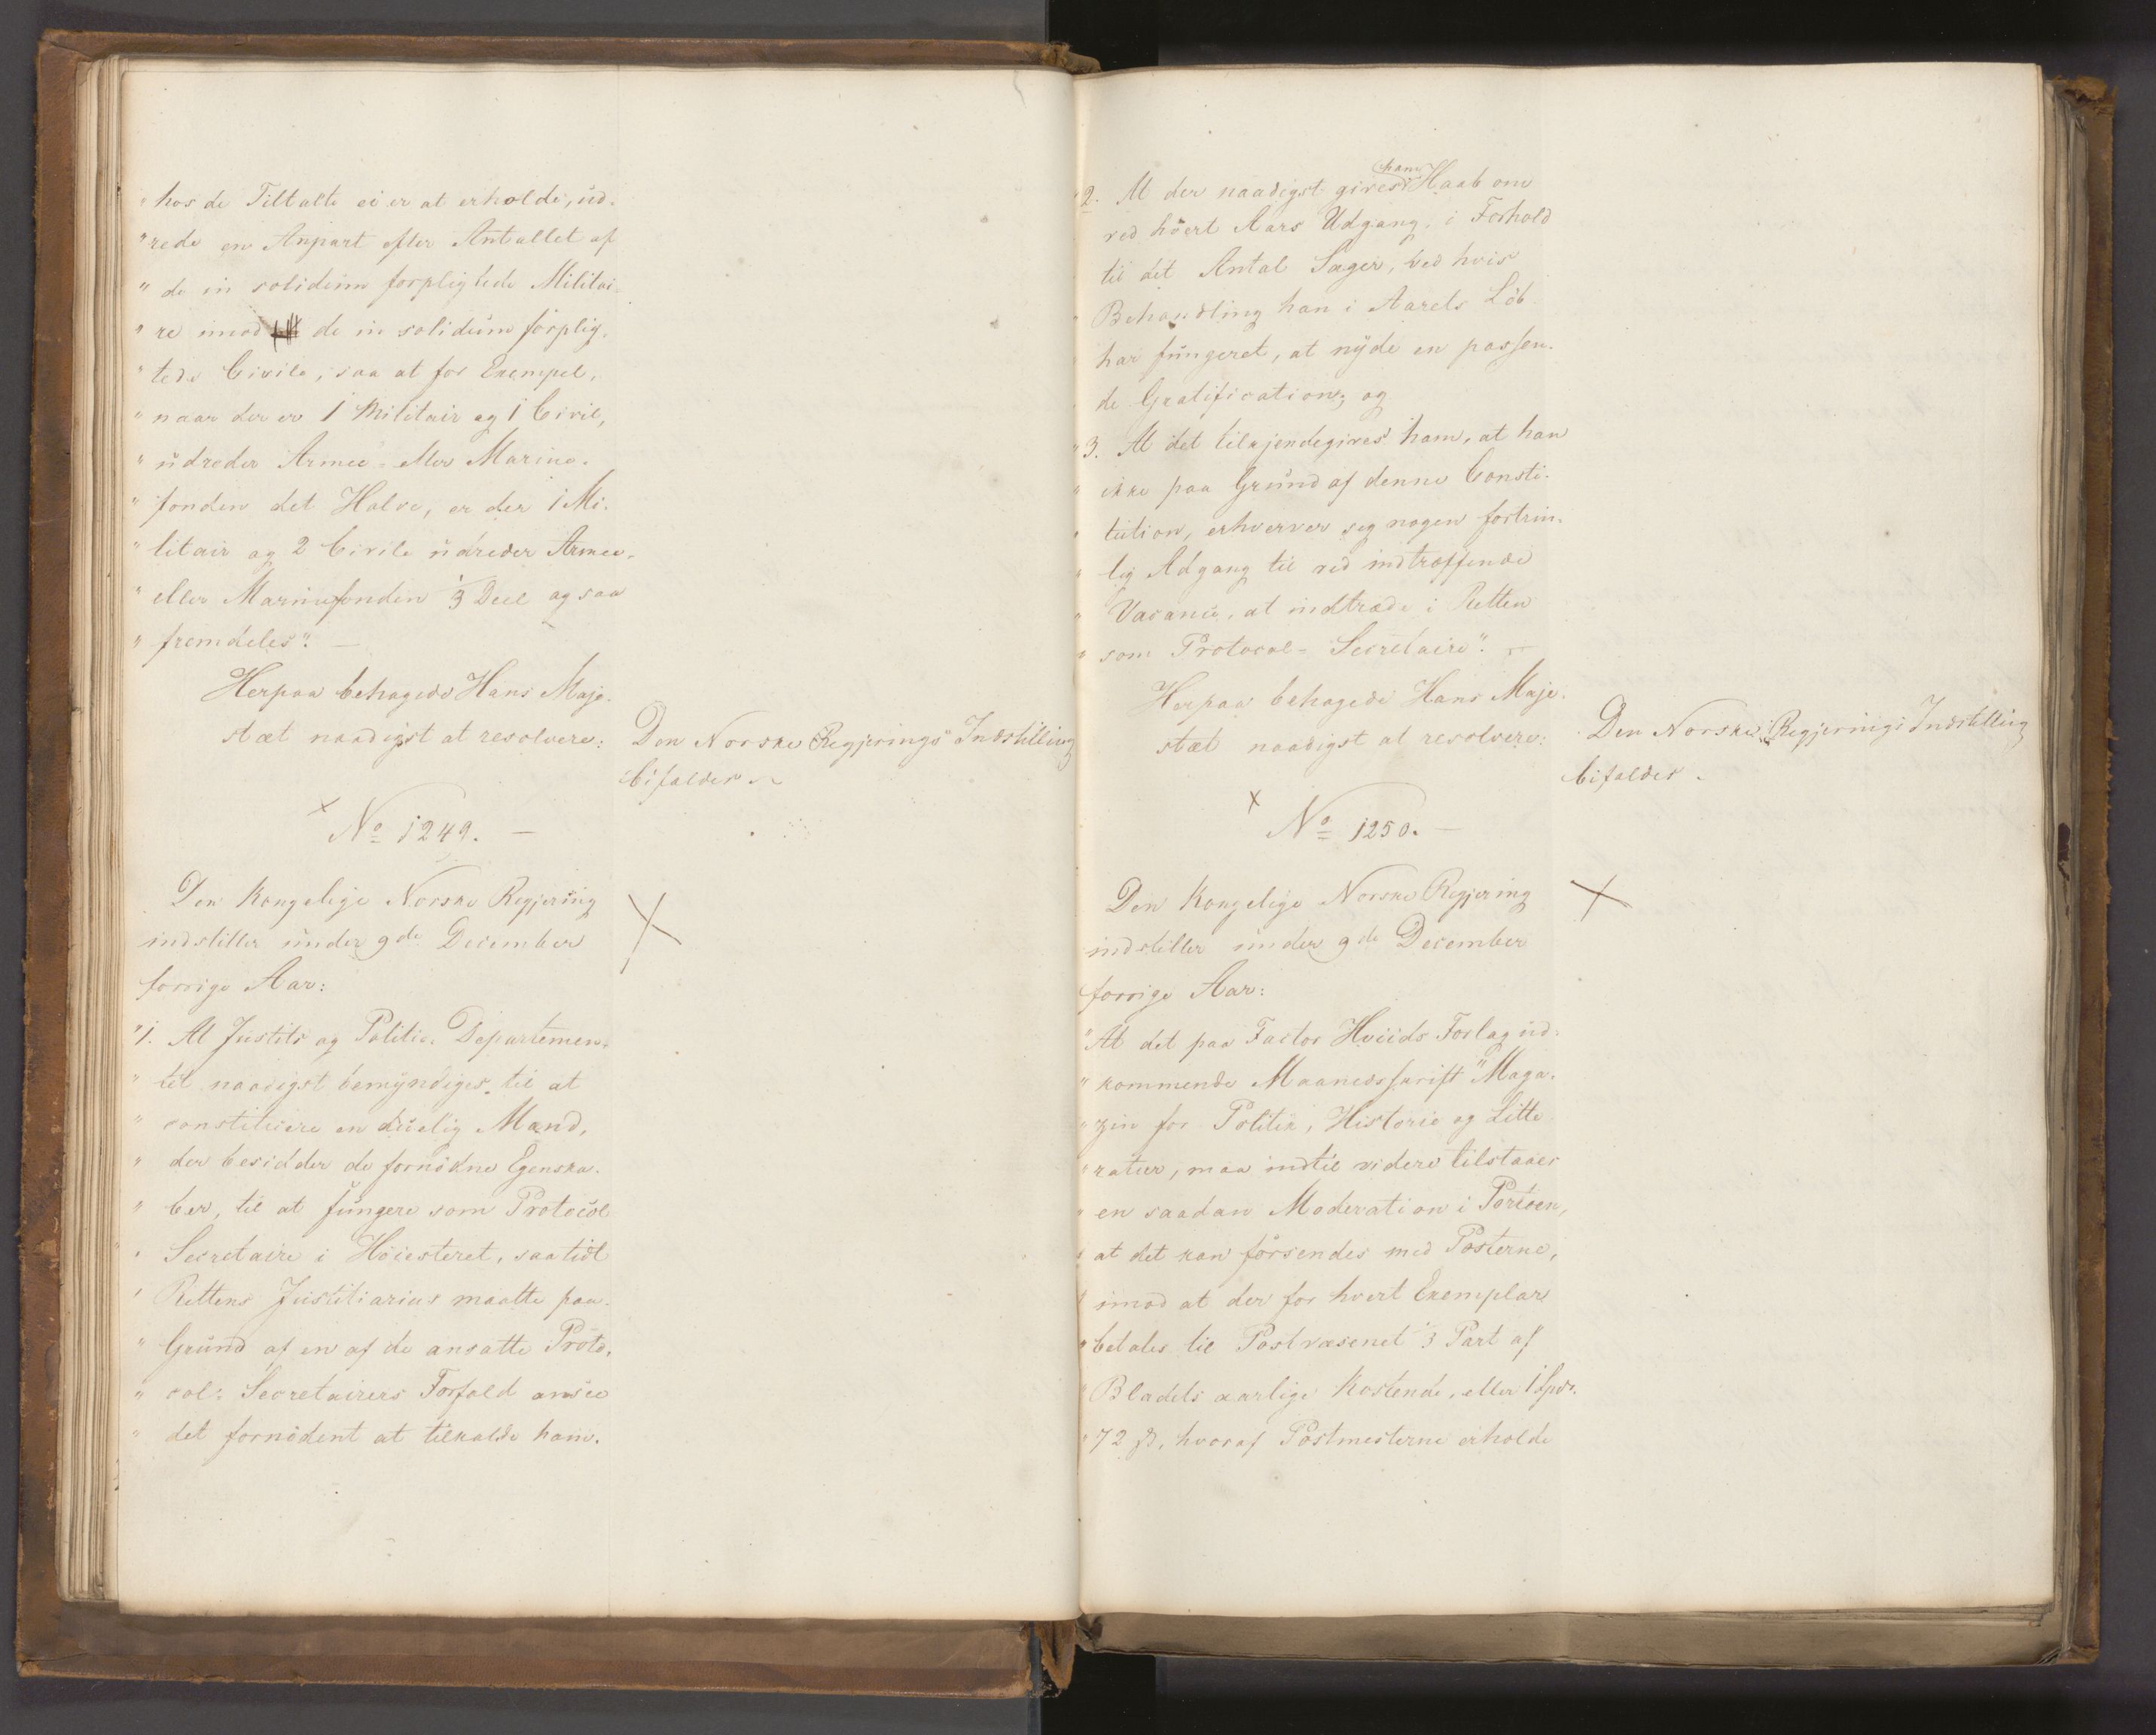 " hos de Tiltalte ei er at erholde, ud-
" rede en Anpart efter Antallet af
" de in solidum forpligtede Militai-
" re imod de in solidum forplig-
" tede Civile, saa at for Exempel,
" naar der er 1 Militair og 1 Civil,
" udreder Armee- eller Marine-
" fonden det Halve, er der 1 Mi-
" litair og 2 Civile udreder Armee-
" eller Marinefonden 1/3 Deel og saa
" fremdeles". —
Herpaa behagede Hans Maje-
stæt naadigst at resolvere:
Den Norske Regjerings Indstilling
bifaldes.
x No 1249. —
Den Kongelige Norske Regjering
indstiller under 9de December
forrige Aar:
"1. At Justits og Politie-Departemen-
" tet naadigst bemyndiges til at
" constituere en duelig Mand,
" der besidder de fornödne Egenska-
" ber, til at fungere som Protocol
" Secretaire i Höiesteret, saa tidt
" Rettens Justitiarius maatte paa
" Grund af en af de ansatte Proto-
" col-Secretairers Forfald ansee
" det fornödent at tilkalde ham.
"2. At der naadigst gives ham Haab om
ved hvert Aars Udgang, i Forhold
til det Antal Sager, ved hvis
" Behandling han i Aarets Löb
har fungeret, at nyde en passen-
de Gratification; og
"3. At det tilkjendegives ham, at han
" ikke paa Grund af denne Consti-
" tution, erhverver sig nogen fortrin-
" lig Adgang til ved indtræffende
" Vacance, at indtræde i Retten
" som Protocol-Secretaire". —
Herpaa behagede Hans Maje-
stæt naadigst at resolvere:
Den Norske Regjerings Indstilling
bifaldes.
x No 1250. —
Den Kongelige Norske Regjering
indstiller under 9de December
forrige Aar:
"At det paa Factor Hviids Forlag ud-
" kommende Maanedsskrift "Maga-
" zin for Politik, Historie og Litte-
" ratur, maa indtil videre tilstaaes
" en saadan Moderation i Portoen,
" at det kan forsendes med Posterne,
" imod at der for hvert Exemplar
" betales til Postvæsenet 1/3 Part af
" Bladets aarlige Kostende, eller 1 Spdr.
" 72 ß, hvoraf Postmesterne erholde